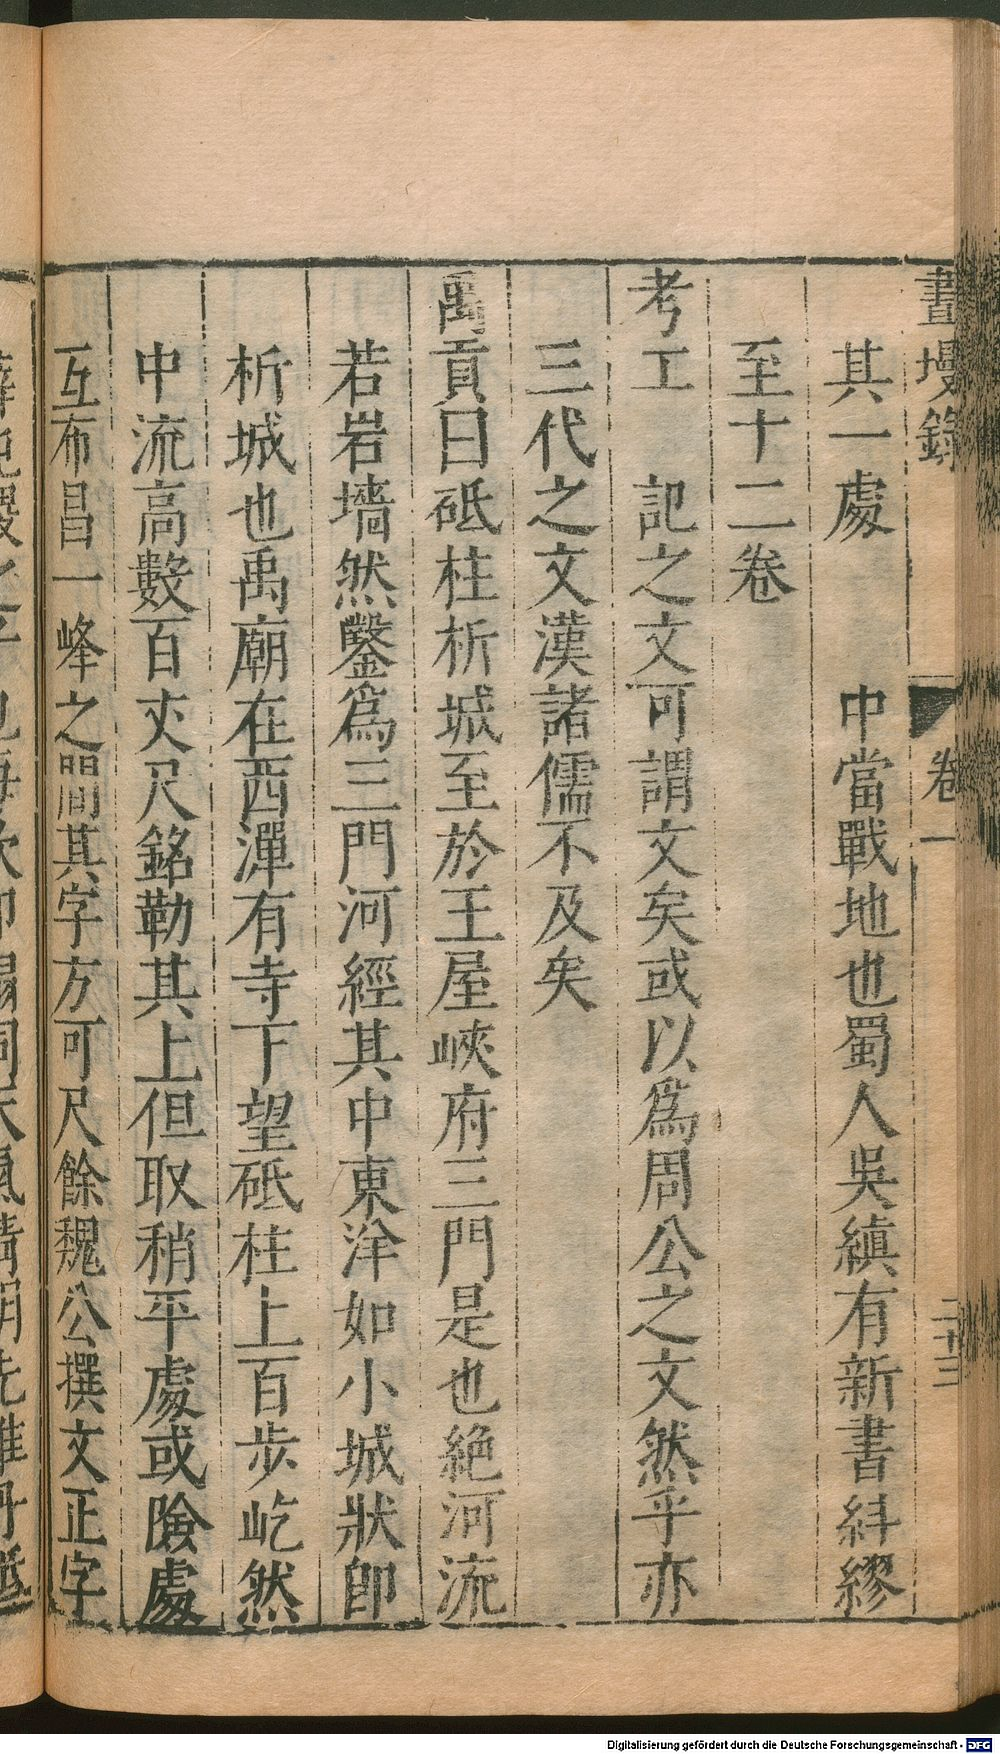 畫墁錄 卷一 二十三
其一處 中當戰地也蜀人吳縝有新書糾繆
至十二卷
考工 記之文可謂文矣或以爲周公之文然乎亦
三代之文漢諸儒不及矣
禹貢曰砥柱析城至於王屋峽府三門是也絶河流
若岩墻然鑿爲三門河經其中東洋如小城狀卽
析城也禹廟在西潬有寺下望砥柱上百步屹然
中流高數百丈尺銘勒其上但取稍平處或險處
互布昌一峰之間其字方可尺餘魏公撰文正字
Digitalisierung gefördert durch die Deutsche Forschungsgemeinschaft - DFG